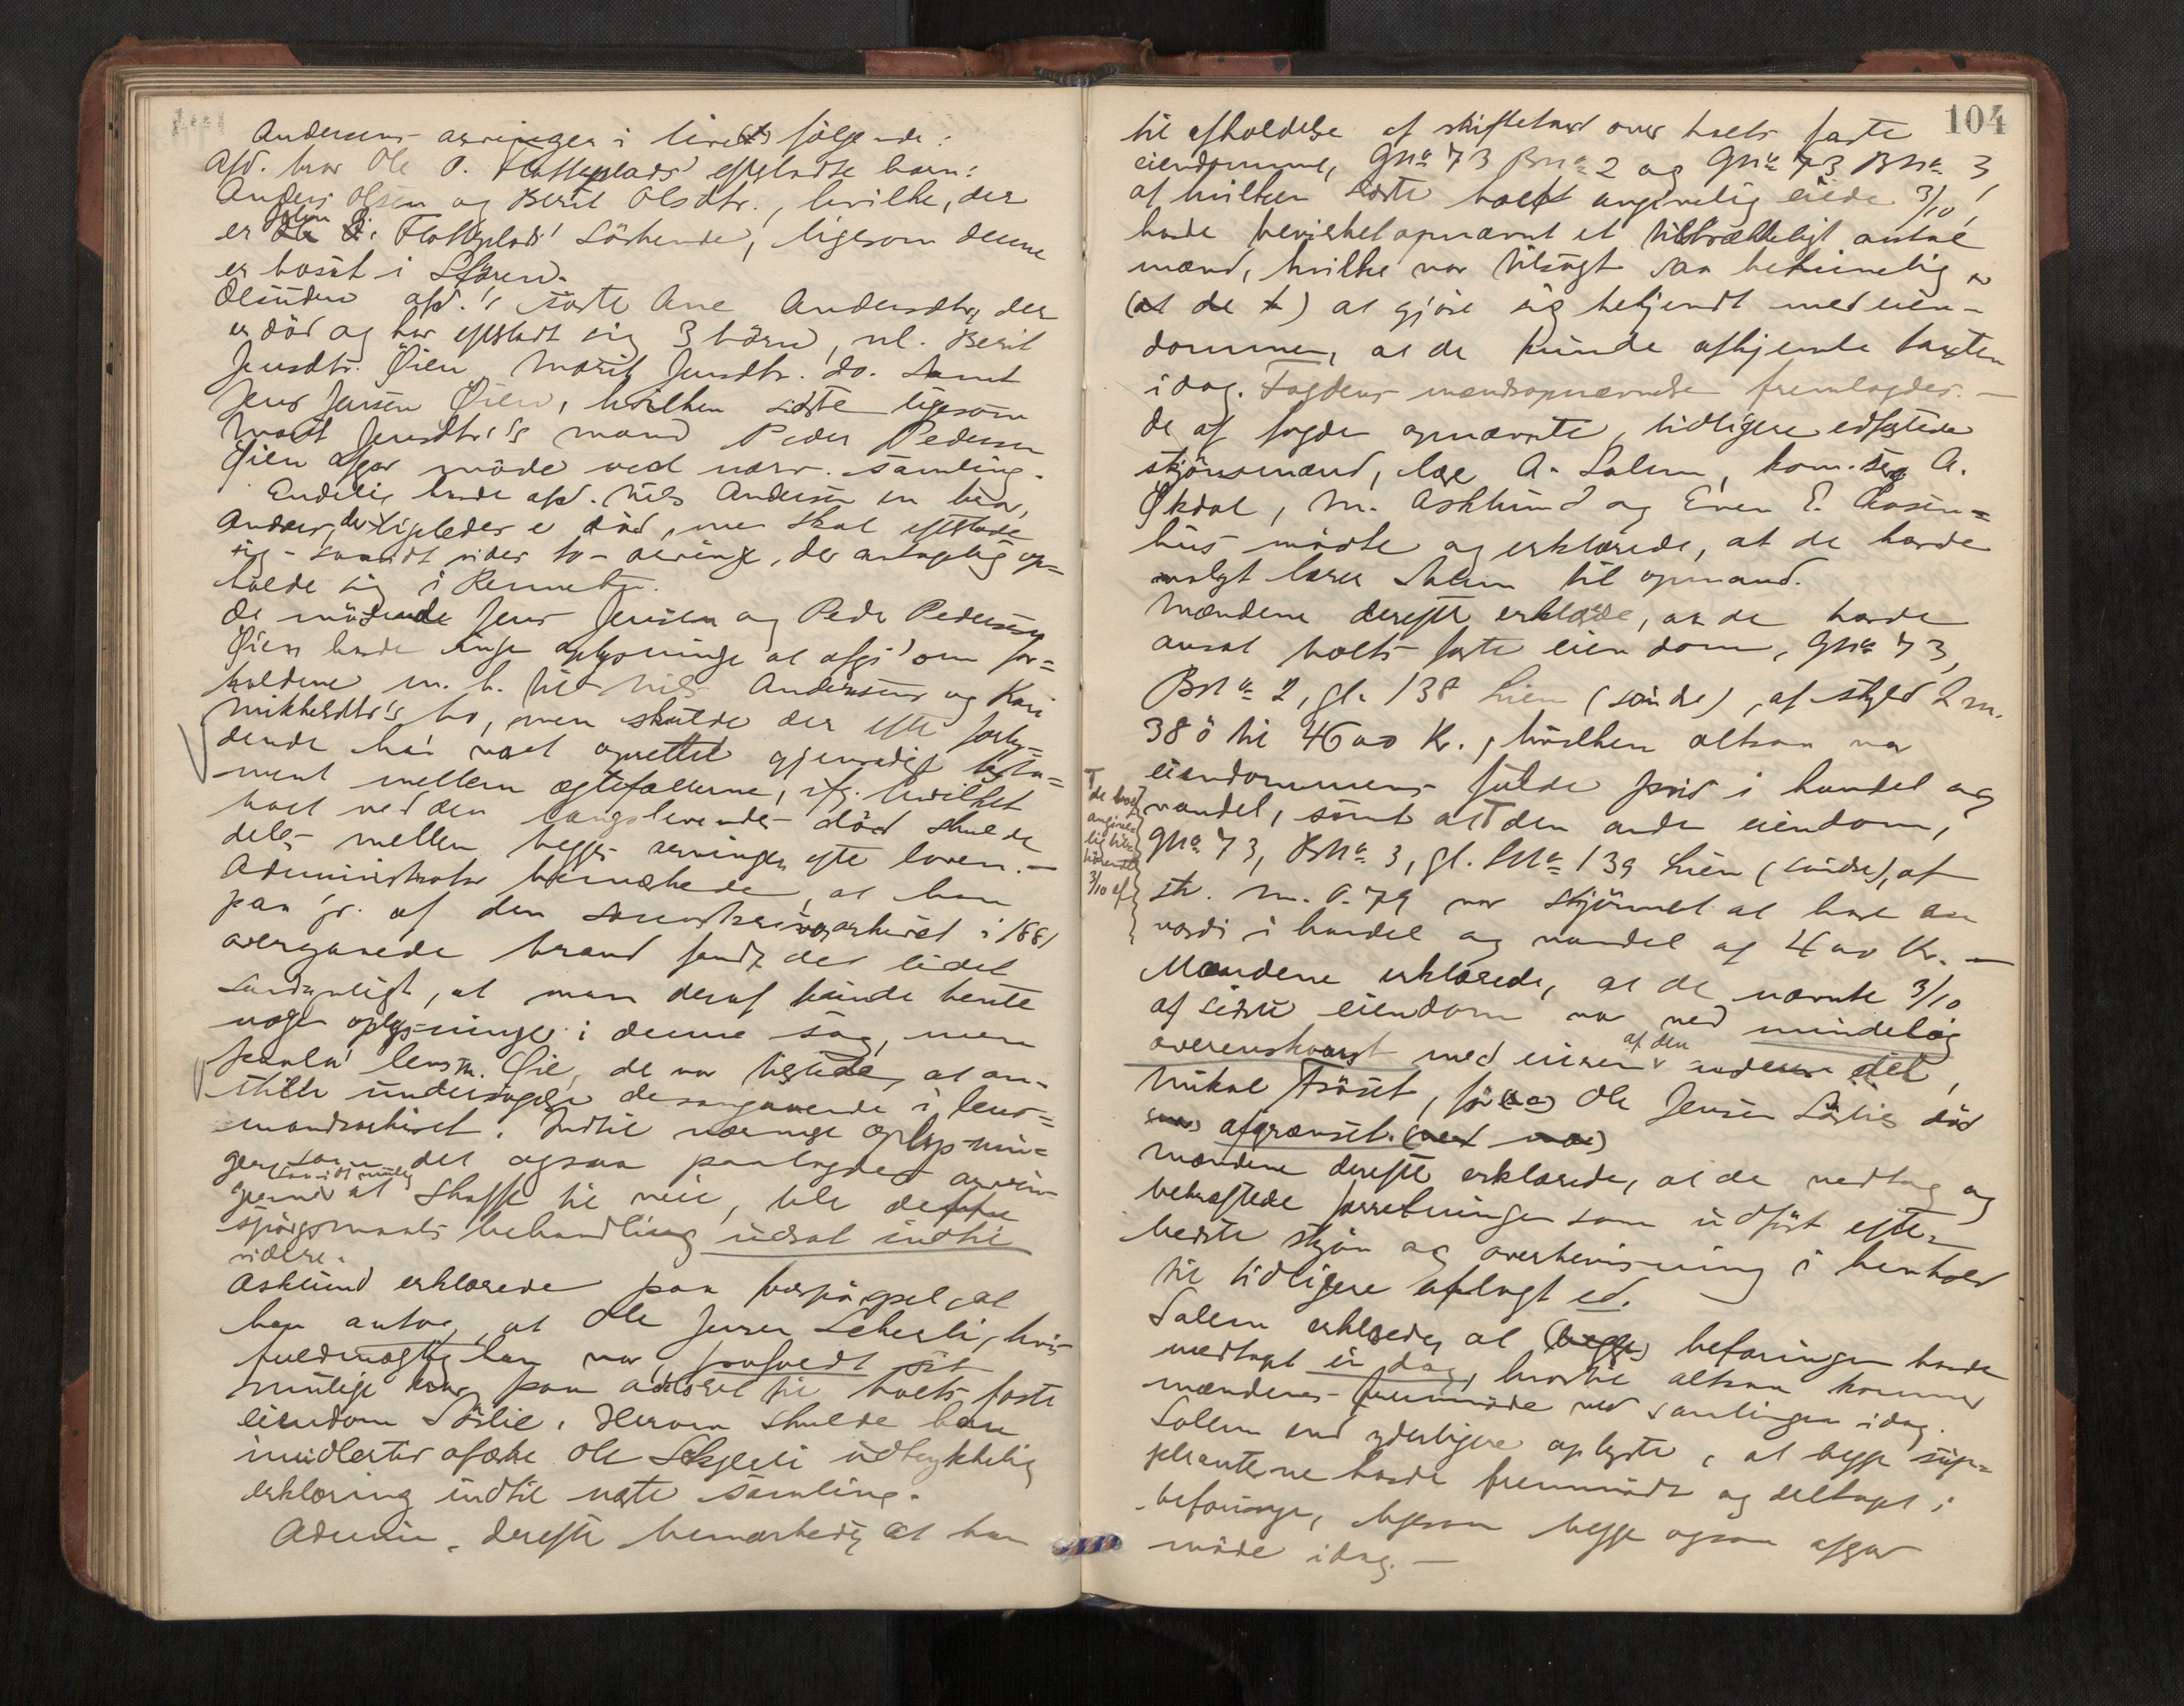 Andersens arvinger i livet følgende:
Afd. bror Ole O. Flotteplads' efterladte barn:
Anders Olsen og Berit Olsdtr., hvilke, der
er John O. Flotteplads' Søskende, ligesom denne
er bosat i Støren.
Desuden afd.'s søster Ane Andersdtr, der
er død og har efterladt sig 3 børn, nl. Berit
Jensdtr. Øien, Marit Jensdtr. do. samt
Jens Jensen Øien, hvilken sidste ligesom
Marit Jensdtr's mand Peder Pedersen
Øien afgav møde ved nærv. samling.
Endelig havde afd. Nils Andersen en bror,
Anders, der ligeledes er død, men skal efterlade
sig – saavidt vides to – arvinger, der antagelig op=
holde sig i Rennebu.
De mødende Jens Jensen og Peder Pedersen
Øien havde inge oplysninger at afgi' om for=
holdene m. h. til Nils Andersens og Kari
Mikkelsdtr's bo, men skulde der efter forly=
dende ha' vært oprettet gjensidigt testa=
ment mellem ægtefællerne, ifg. hvilket
boet ved den længstlevendes død skulde
deles mellem begges arvinger efter loven. —
Administrator bemærkede, at han
paa gr. af den Sorenskriverarkivet i 1881
overgaaede brand fandt det lidet
sandsynligt, at man deraf kunde hente
nogen oplysninger i denne sag, men
paala' lensm. Øie, der var tilstede, at an=
stille undersøgelse desangaaende i lens=
mandsarkivet. Indtil nærmere oplysnin=
ger, som det ogsaa paalagdes arvin=
gerne saavidt mulig at skaffe til veie, ble dette
spørgsmaals behandling udsat indtil
videre.
Asklund erklærede paa forspørgsel, at
han antog, at Ole Jensen Scheeli, hvis
fuldmægtig han var, frafaldt sit
mulige krav paa adkomst til boets faste
eiendom Sørlie. Herom skulde han
imidlertid afæske Ole Skjerli udtrykkelig
erklæring indtil næste samling.
Admin. derefter bemærkede, at han
104
til afholdelse af skiftetaxt over boets faste
eiendomme, Gno 73 Bno 2 og Gno 73 Bno 3,
af hvilken sidste boet angivelig eiede 3/10,
havde bevirket opnævnt et tilstrækkeligt antal
mænd, hvilke var tilsagt saa betimelig
(at de t) at gjøre sig bekjendt med eien-
dommen, at de kunde afhjemle taxten
idag. Fogdens mandsopnævnelse fremlagdes. —
De af fogden opnævnte, tidligere edfæstede
skjønsmænd, lærer A. Solem, A.
Økdal, M. Asklund og Even E. Aasen=
hus mødte og erklærede, at de havde
valgt lærer Solem til opmand.
Mændene derefter erklærede, at de havde
ansat boets faste eiendom, Gno 73,
Bno 2, gl. 138 Lien (søndre), af skyld 2 m.
38 ø til 4600 Kr., hvilken altsaa var
eiendommens fulde pris i handel og
vandel, samt at T den anden eiendom,
T de boet
angivelig
tilhørende
3/10 af
Gno 73, Bno 3, gl. Lno 139 Lien (søndre), af
sk. m. 0.79 var skjønnet at have en
værdi i handel og vandel af 400 Kr. —
Mændene erklærede, at de nævnte 3/10
af sidste eiendom var ved mindelig
overenskomst med eieren af den anden del,
Mikal Frøset, før Ole Jensen Sørlies død
afgrænset.
Mændene derefter erklærede, at de vedtog og
bekræftede forretningen som udført efter
bedste skjøn og overbevisning i henhold
til tidligere aflagt ed.
Solem erklærede, at (begge) befaringen havde
medtaget én dag, hvortil altsaa kommer
mændenes fremmøde ved samlingen idag.
Solem end yderligere oplyste, at begge sup=
pleanterne havde fremmødt og deltaget i
befaringen, ligesom begge ogsaa afgav
møde idag. —